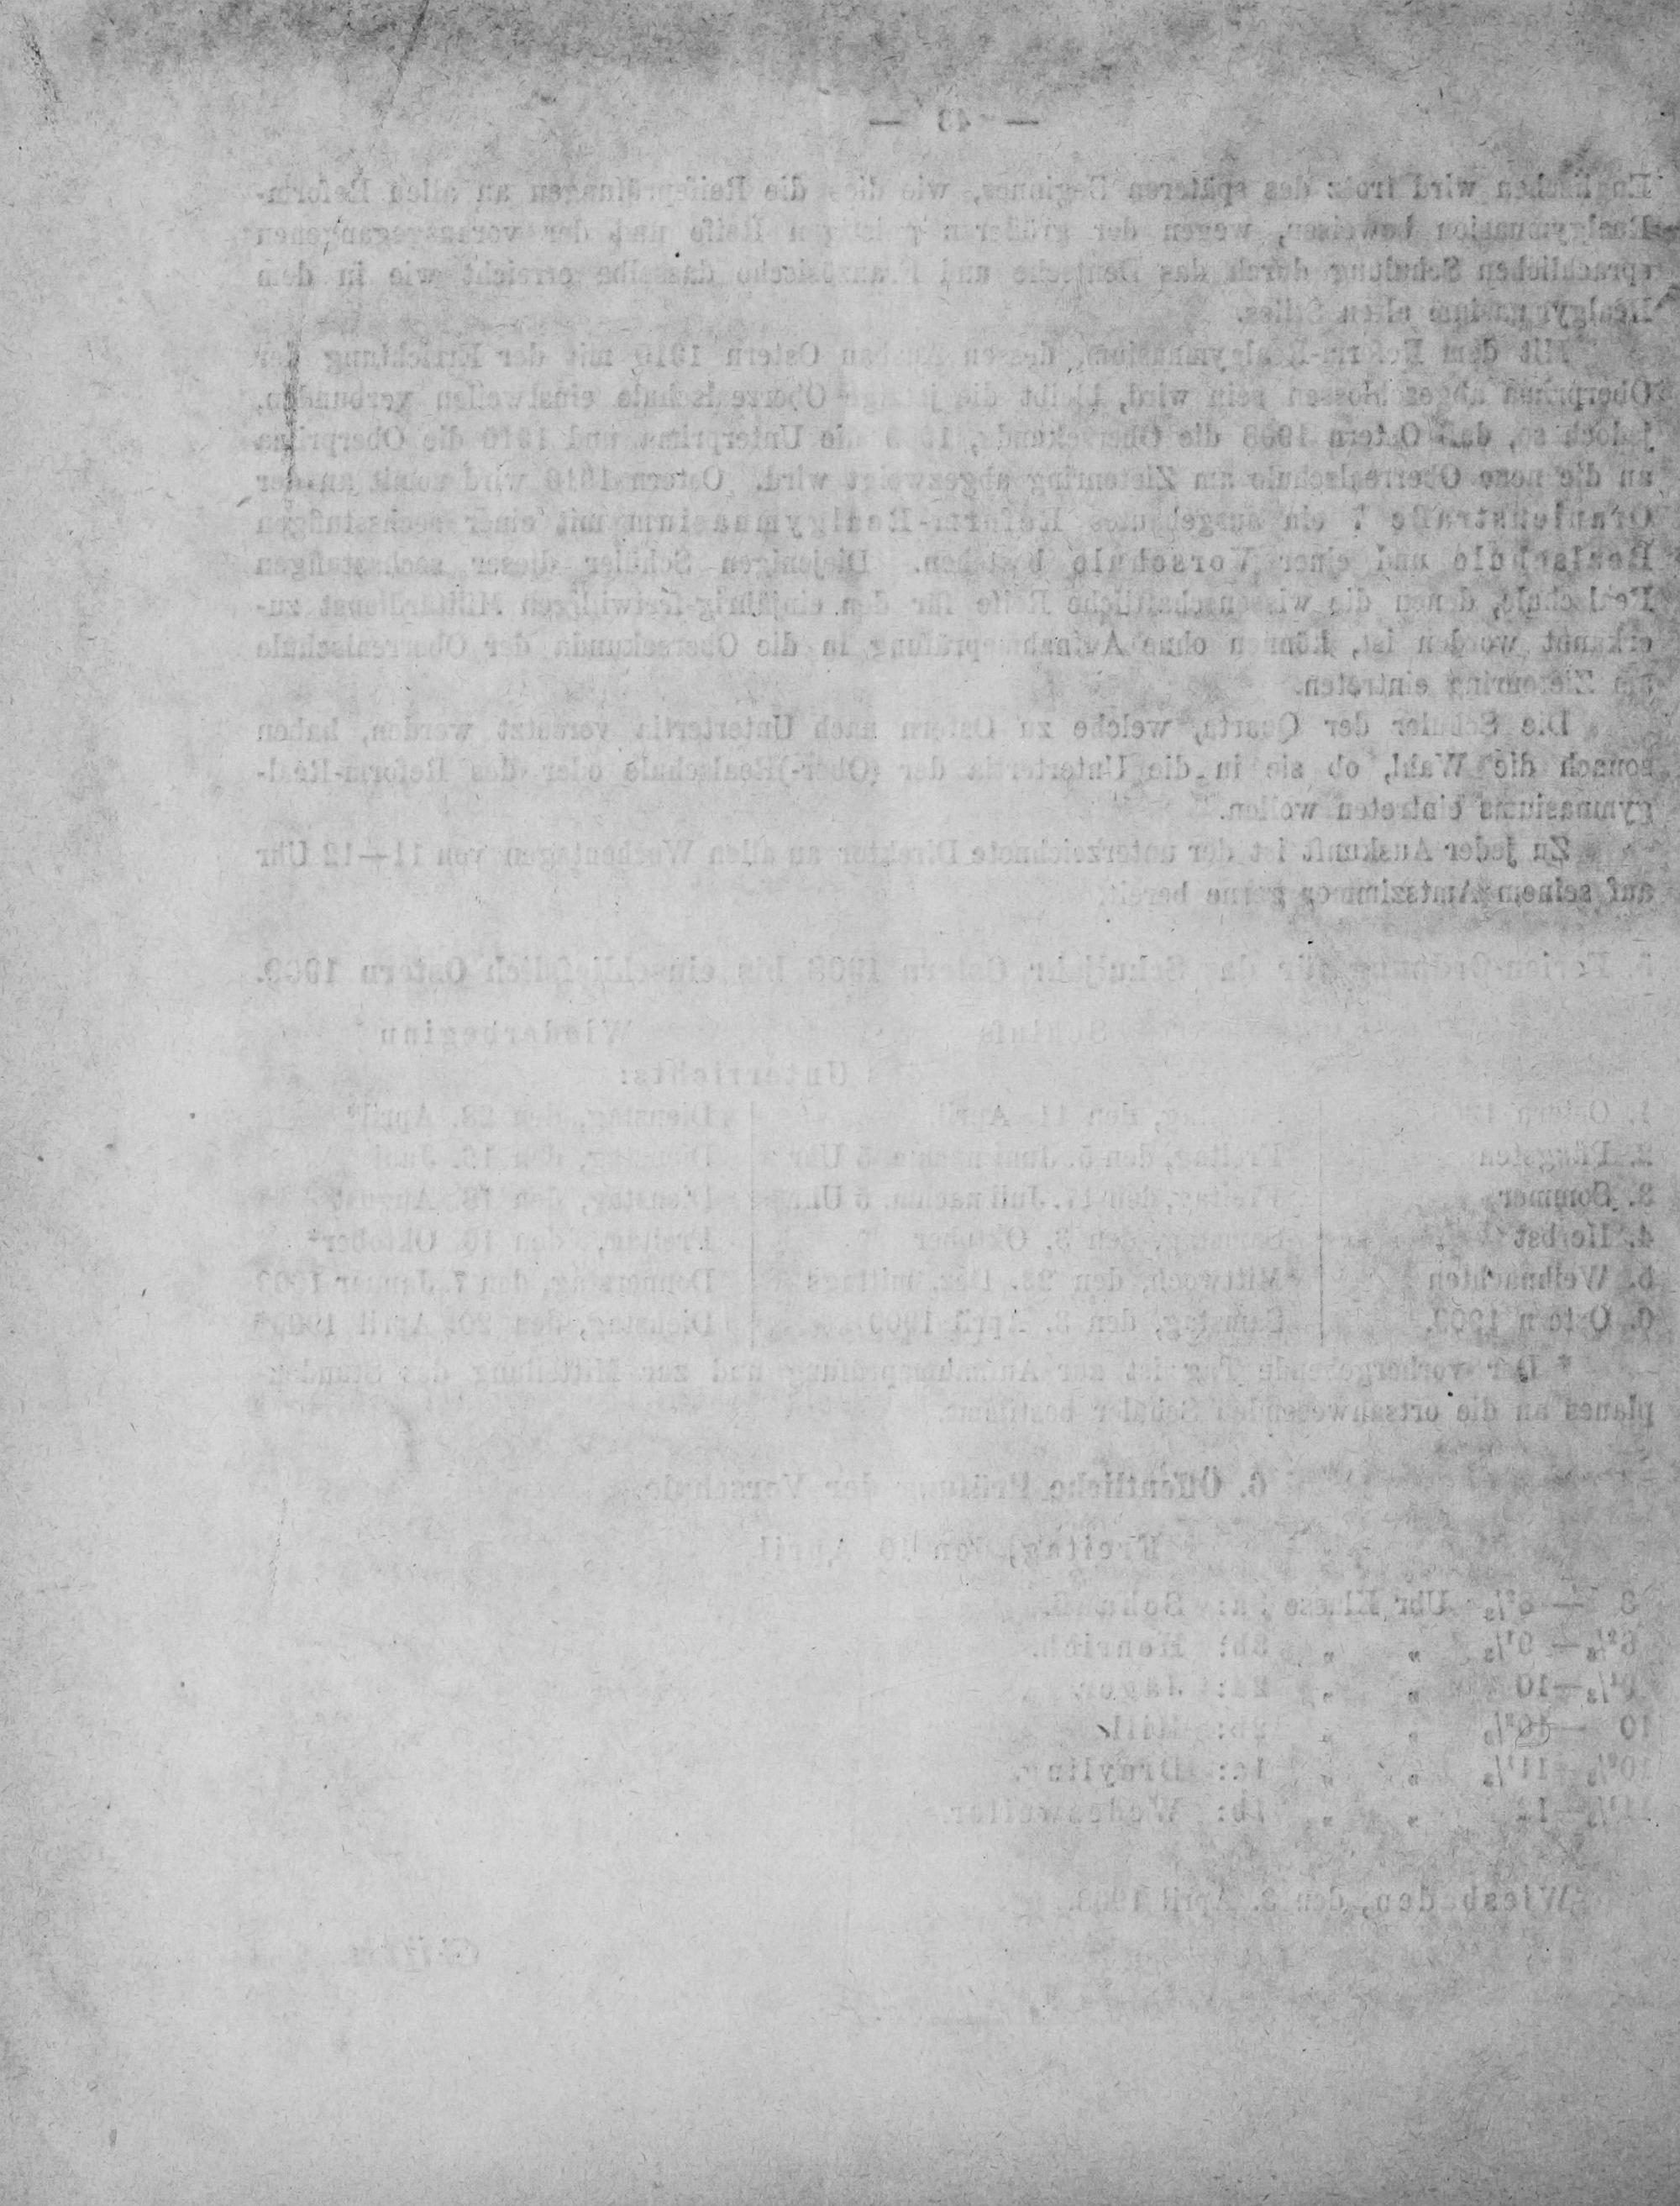 — 40 —
Englischen wird trotz des späteren Beginnes, wie dies die Reifeprüfungen an allen Reform-
Realgymnasien beweisen, wegen der größeren Reife und der vorausgegangenen
sprachlichen Schulung durch das Deutsche und Französische dasselbe erreicht wie in dem
Realgymnasium alten Stiles.
Mit dem Reform-Realgymnasium, dessen Ausbau Ostern 1910 mit der Errichtung der
Oberprima abgeschlossen sein wird, bleibt die jetzige Oberrealschule einstweilen verbunden,
jedoch so, daß Ostern 1908 die Obersekunda, 1909 die Unterprima und 1910 die Oberprima
an die neue Oberrealschule am Zietenring abgezweigt wird. Ostern 1910 wird somit an der
Oranienstraße 7 ein ausgebautes Reform-Realgymnasium mit einer sechsstufigen
Realschule und einer Vorschule bestehen. Diejenigen Schüler dieser sechsstufigen
Realschule, denen die wissenschaftliche Reife für den einjährig-freiwilligen Militärdienst zu-
erkannt worden ist, können ohne Aufnahmeprüfung in die Obersekunda der Oberrealschule
am Zietenring eintreten.
Die Schüler der Quarta, welche zu Ostern nach Untertertia versetzt werden, haben
sonach die Wahl, ob sie in die Untertertia der (Ober-)Realschule oder des Reform-Real-
gymnasiums eintreten wollen.
Zu jeder Auskunft ist der unterzeichnete Direktor an allen Wochentagen von 11—12 Uhr
auf seinem Amtszimmer gerne bereit.
5. Ferien-Ordnung für das Schuljahr Ostern 1908 bis einschließlich Ostern 1909.
Schluß Wiederbeginn
des Unterrichts:
1. Ostern den 11. April Dienstag, den 28. April*
2. Pfingsten Freitag, den 5. Juni nachm. 5 Uhr Dienstag, den 16. Juni
3. Sommer Freitag, den 17. Juli nachm. 5 Uhr Dienstag, den 18. August
4. Herbst Samstag, den 3. Oktober Freitag, den 16. Oktober*
5. Weihnachten Mittwoch, den 23. Dez. mittags Donnerstag, den 7. Januar 1909
6. Ostern 1909. Samstag, den 3. April 1909 Dienstag, den 20. April 1909*
* Der vorhergehende Tag ist zur Aufnahmeprüfung und zur Mitteilung des Stunden-
planes an die ortsanwesenden Schüler bestimmt.
6. Öffentliche Prüfung der Vorschule.
Freitag, den 10. April.
8 — 8²/₃ Uhr Klasse 3a: Schmidt.
8²/₃— 9¹/₃ „ „ 3b: Henrich.
9¹/₃—10 „ „ 2a: Jäger.
10 —10²/₃ „ „ 2b: Hill.
10²/₃—11¹/₃ „ „ 1a:
11¹/₃—12 „ „ 1b: Wedesweiler.
Wiesbaden, den 3. April 1908.